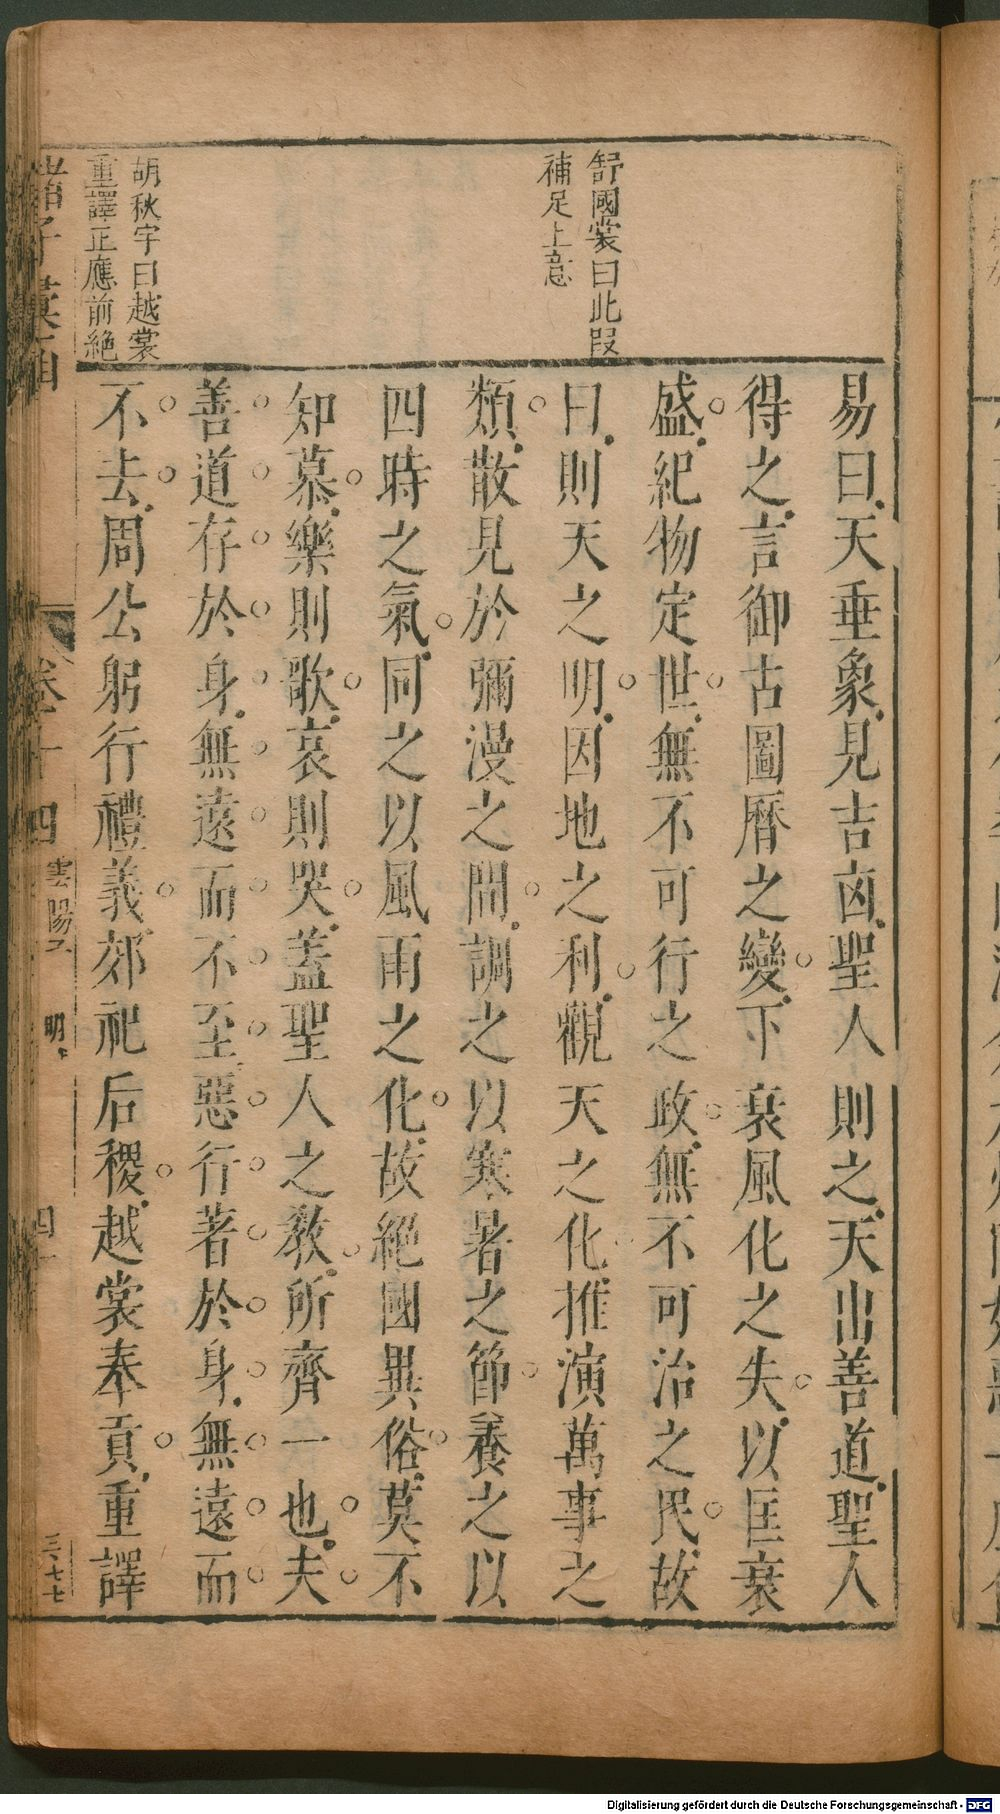 舒國裳曰此叚
補足上意
胡秋宇曰越裳
重譯正應前絶
易曰天垂象見吉凶聖人則之天出善道聖人
得之言御古圖曆之變下衰風化之失以匡衰
盛紀物定世無不可行之政無不可治之民故
曰則天之明因地之利觀天之化推演萬事之
類散見於彌漫之間調之以寒暑之節養之以
四時之氣同之以風雨之化故絕國異俗莫不
知慕樂則歌哀則哭蓋聖人之教所齊一也夫
善道存於身無遠而不至惡行著於身無遠而
不去周公躬行禮義郊祀后稷越裳奉貢重譯
諸子
卷十四
雲陽
明
四一
三七七
Digitalisierung gefördert durch die Deutsche Forschungsgemeinschaft - DFG